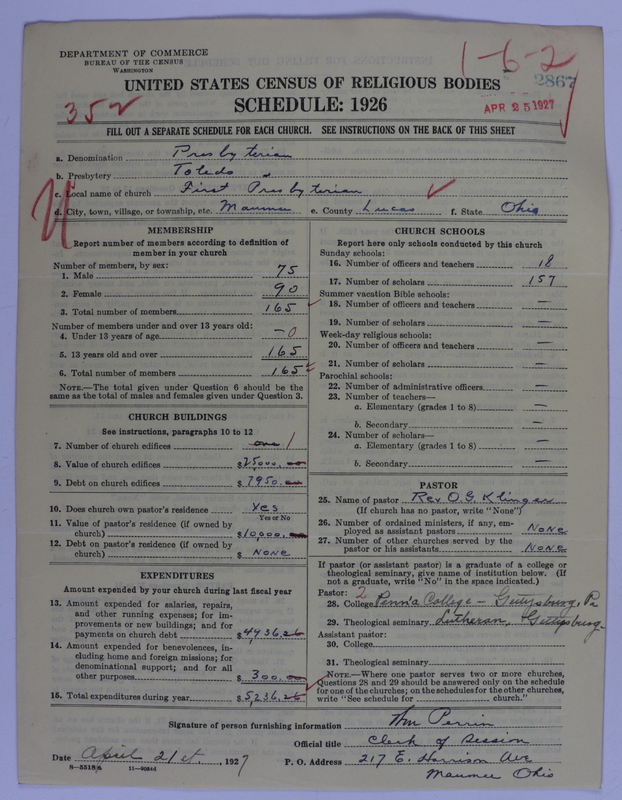 DEPARTMENT OF COMMERCE
BUREAU OF THE CENSUS
WASHINGTON
1-6-2
2867
UNITED STATES CENSUS OF RELIGIOUS BODIES
352
SCHEDULE: 1926
APR 25 1927
FILL OUT A SEPARATE SCHEDULE FOR EACH CHURCH. SEE INSTRUCTIONS ON THE BACK OF THIS SHEET
a. Denomination Presbyterian
b. Presbytery Toledo "
c. Local name of church First Presbyterian
d. City, town, village, or township, etc. Maumee e. County Lucas f. State Ohio
MEMBERSHIP
Report number of members according to definition of
member in your church
Number of members, by sex:
1. Male 75
2. Female 90
3. Total number of members 165
Number of members under and over 13 years old:
4. Under 13 years of age —0
5. 13 years old and over 165
6. Total number of members 165
NOTE.—The total given under Question 6 should be the
same as the total of males and females given under Question 3.
CHURCH BUILDINGS
See instructions, paragraphs 10 to 12
7. Number of church edifices one 1
8. Value of church edifices $35000.00
9. Debt on church edifices $7950.00
10. Does church own pastor's residence Yes
Yes or No
11. Value of pastor's residence (if owned by
church) $10,000.00
12. Debt on pastor's residence (if owned by
church) $ NONE
EXPENDITURES
Amount expended by your church during last fiscal year
13. Amount expended for salaries, repairs,
and other running expenses; for im-
provements or new buildings; and for
payments on church debt $4936.26
14. Amount expended for benevolences, in-
cluding home and foreign missions; for
denominational support; and for all
other purposes $300.00
15. Total expenditures during year $5236.26
CHURCH SCHOOLS
Report here only schools conducted by this church
Sunday schools:
16. Number of officers and teachers 18
17. Number of scholars 157
Summer vacation Bible schools:
18. Number of officers and teachers —
19. Number of scholars —
Week-day religious schools:
20. Number of officers and teachers —
21. Number of scholars —
Parochial schools:
22. Number of administrative officers —
23. Number of teachers—
a. Elementary (grades 1 to 8) —
b. Secondary —
24. Number of scholars—
a. Elementary (grades 1 to 8) —
b. Secondary —
PASTOR
25. Name of pastor Rev O. G. Klinger
(If church has no pastor, write "None")
26. Number of ordained ministers, if any, em-
ployed as assistant pastors NONE
27. Number of other churches served by the
pastor or his assistants NONE
If pastor (or assistant pastor) is a graduate of a college or
theological seminary, give name of institution below. (If
not a graduate, write "No" in the space indicated.)
Pastor: 2
28. College Penn'a College — Gettysburg, Pa
29. Theological seminary Lutheran, Gettysburg
Assistant pastor:
30. College
31. Theological seminary
NOTE.—Where one pastor serves two or more churches,
Questions 28 and 29 should be answered only on the schedule
for one of the churches; on the schedules for the other churches,
write "See schedule for church."
Signature of person furnishing information Wm Perrin
Official title Clerk of Session
Date April 21st, 1927 P. O. Address 217 E. Harrison Ave
Maumee Ohio